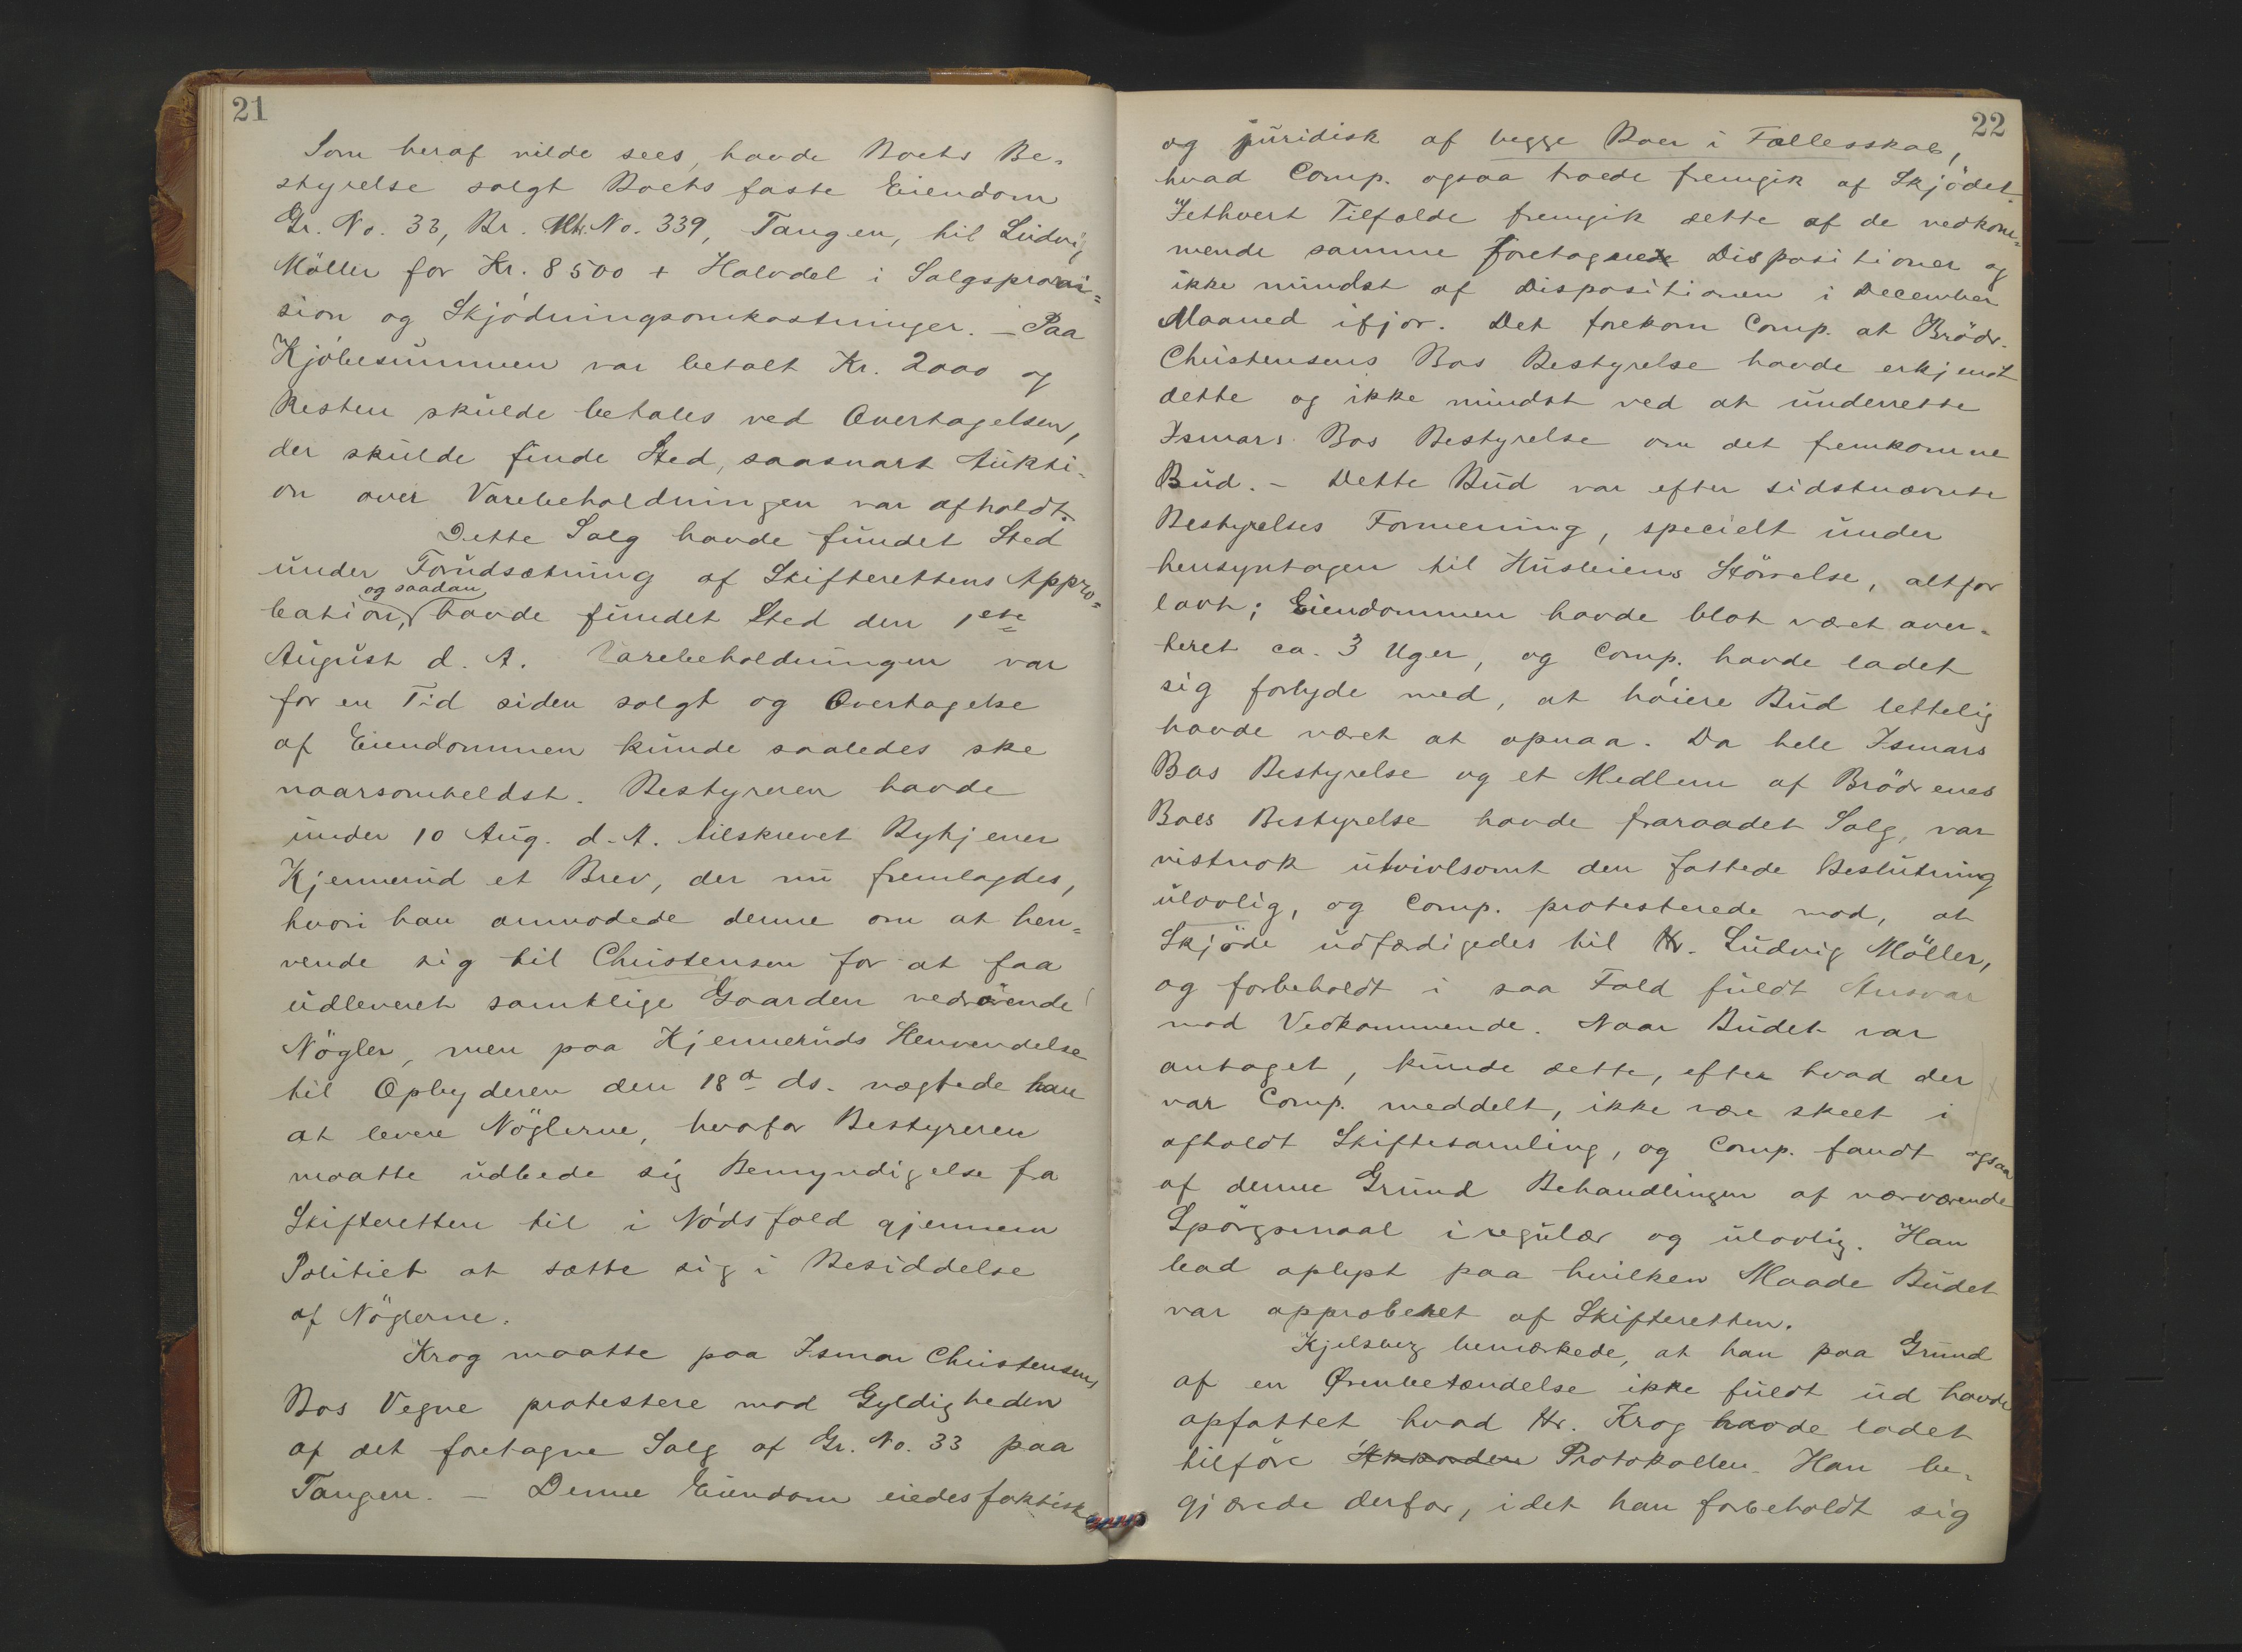 21
Som heraf vilde sees, havde Boets Be-
styrelse solgt Boets faste Eiendom
Gr. No. 33, Br. Mt. No. 339, Tangen, til Ludvig
Möller for Kr. 8500 + Halvdel i Salgsprovi=
sion og Skjödningsomkostninger. – Paa
Kjöbesummen var betalt Kr. 2000 og
Resten skulde betales ved Overtagelsen,
der skulde finde Sted, saasnart Auksti-
on over Varebeholdningen var afholdt.
Dette Salg havde fundet Sted
under Forudsætning af Skifterettens Appro=
og saadan
bation, havde fundet Sted den 1ste
August d. A. Varebeholdningen var
for en Tid siden solgt og Overtagelse
af Eiendommen kunde saaledes ske
naarsomheldst. Bestyreren havde
under 10 Aug. d. A. tilskrevet Byhjener
Kjennerud et Brev, der nu fremlagdes,
hvori han anmodede denne om at hen=
vende sig til Christensen for at faa
udleveret samtlige Gaarden vedrörende
Nögler, men paa Kjenneruds Henvendelse
til Opbyderen den 18d ds. vægtede han
at levere Nöglerne, hvorfor Bestyreren
maatte udbede sig Bemyndigelse fra
Skifteretten til i Nödsfald gjennem
Politiet at sætte sig i Besiddelse
af Nöglerne.
Krog maatte paa Ismar Christensens
Bos Vegne protestere mod Gyldigheden
af det foretagne Salg af Gr. No. 33 paa
Tangen. – Denne Eiendom eiedes faktisk
22
og juridisk af begge Boer i Fællesskab,
hvad Comp. ogsaa troede fremgik af Skjödet.
I ethvert Tilfælde fremgik dette af de vedkom=
mende samme foretagne Dispositioner og
ikke mindst af Dispositionen i December
Maaned ifjor. Det forekom Comp. at Brödr.
Christensens Bos Bestyrelse havde erkjendt
dette og ikke mindst ved at underrette
Ismars Bos Bestyrelse om det fremkomne
Bud. – Dette Bud var efter sidstnævnte
Bestyrelses Formening, specielt under
hensyntagen til Husleiens Störrelse, altfor
lavt; Eiendommen havde blot været aver-
teret ca. 3 Uger, og Comp. havde ladet
sig forlyde med, at höiere Bud lettelig
havde været at opnaa. Da hele Ismars
Bos Bestyrelse og et Medlem af Brödrenes
Boes Bestyrelse havde fraraadet Salg, var
vistnok utvivlsomt den fattede Beslutning
ulovlig, og Comp. protesterede mod, at
Skjöde udfærdigedes til Hr. Ludvig Möller,
og forbeholdt i saa Fald fuldt Ansvar
mod Vedkommende. Naar Budet var
antaget, kunde dette, efter hvad der
var Comp. meddelt, ikke være skeet i
afholdt Skiftesamling, og Comp. fandt ogsaa
af denne Grund Behandlingen af nærværende
Spörgsmaal iregulær og ulovlig. Han
bad oplyst paa hvilken Maade Budet
var approberet af Skifteretten.
Kjelsberg bemærkede, at han paa Grund
af en Ørenbetændelse ikke fuldt ud havde
opfattet hvad Hr. Krog havde ladet
tilföre Protokollen. Han be-
gjærede derfor, idet han forbeholdt sig